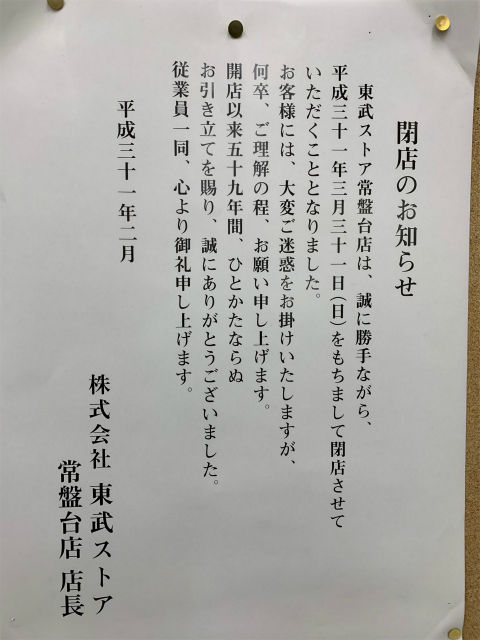 閉店のお知らせ
東武ストア常盤台店は、誠に勝手ながら、
平成三十一年三月三十一日(日)をもちまして閉店させて
いただくこととなりました。
お客様には、大変ご迷惑をお掛けいたしますが、
何卒、ご理解の程、お願い申し上げます。
開店以来五十九年間、ひとかたならぬ
お引き立てを賜り、誠にありがとうございました。
従業員一同、心より御礼申し上げます。
平成三十一年二月
株式会社 東武ストア
常盤台店 店長